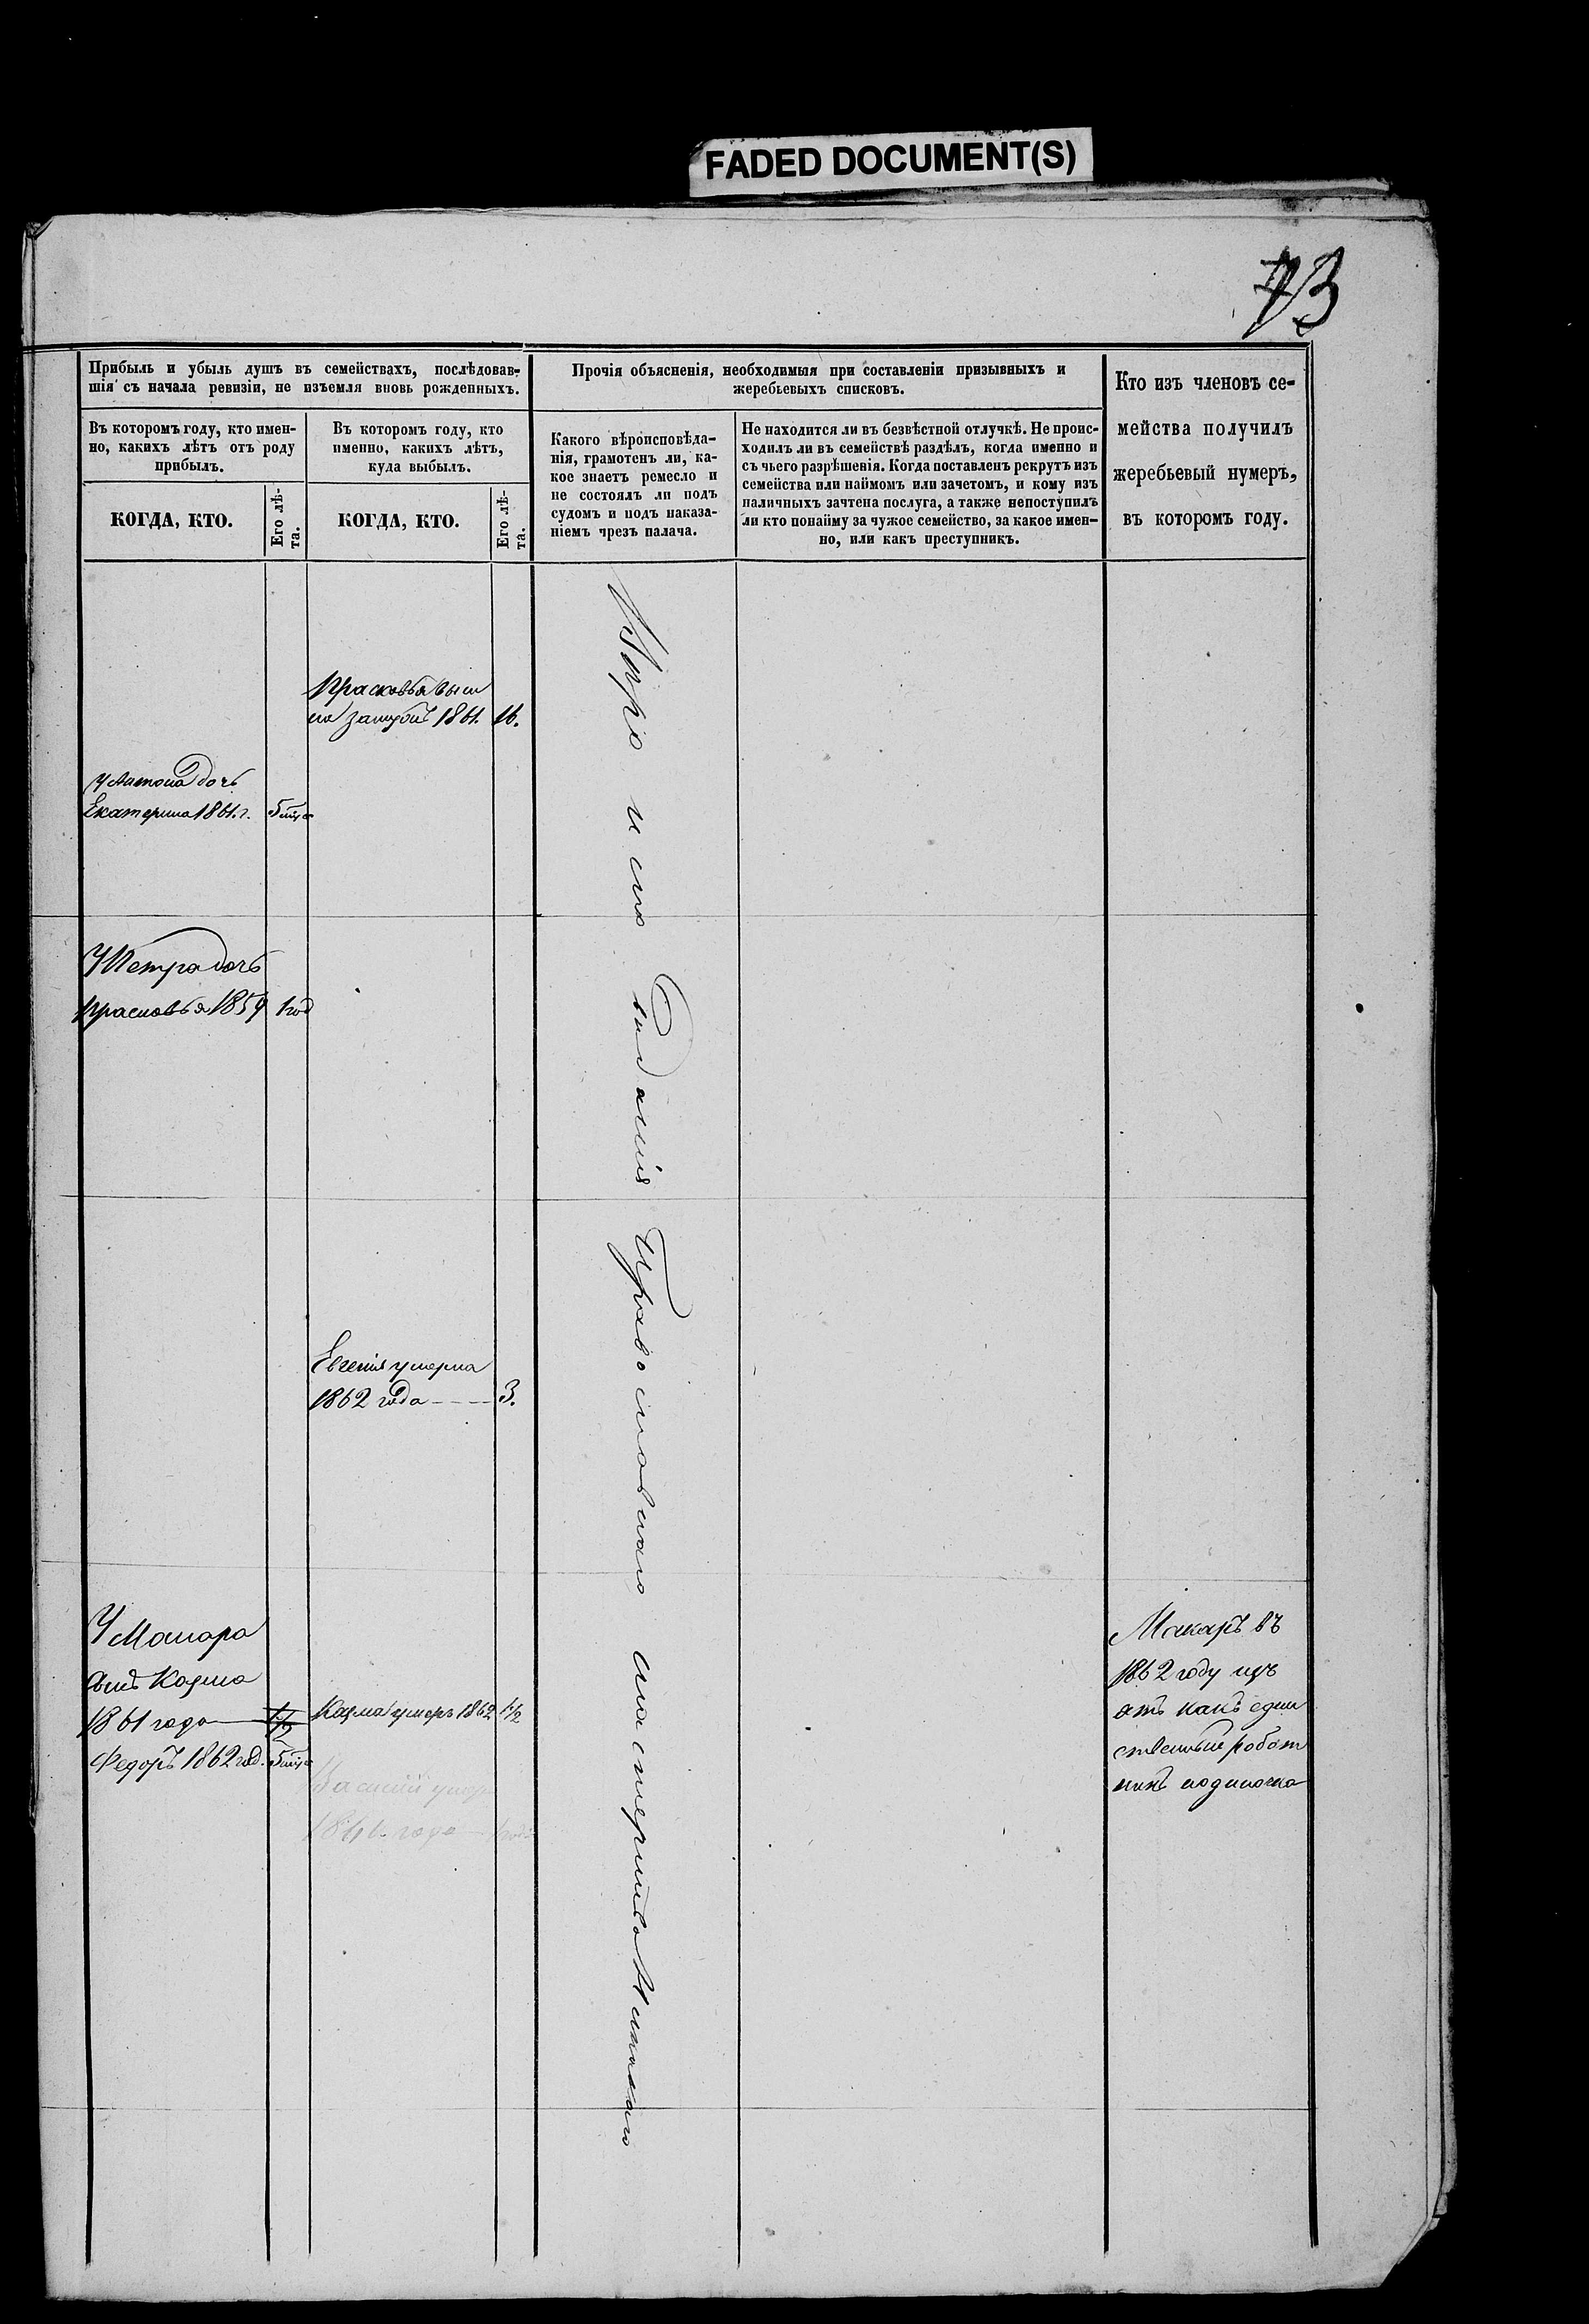 FADED DOCUMENT(S)
73
Прибыль и убыль душъ въ семействахъ, послѣдовав-
шія съ начала ревизіи, не изъемля вновь рожденныхъ.
Въ которомъ году, кто имен-
но, какихъ лѣтъ отъ роду
прибылъ.
КОГДА, КТО.
Его лѣ-
та.
Въ которомъ году, кто
именно, какихъ лѣтъ,
куда выбылъ.
КОГДА, КТО.
Его лѣ-
та.
Прочія объясненія, необходимыя при составленіи призывныхъ и
жеребьевыхъ списковъ.
Какого вѣроисповѣда-
нія, грамотенъ ли, ка-
кое знаетъ ремесло и
не состоялъ ли подъ
судомъ и подъ наказа-
ніемъ чрезъ палача.
Не находится ли въ безвѣстной отлучкѣ. Не проис-
ходилъ ли въ семействѣ раздѣлъ, когда именно и
съ чьего разрѣшенія. Когда поставленъ рекрутъ изъ
семейства или наймомъ или зачетомъ, и кому изъ
наличныхъ зачтена послуга, а также непоступилъ
ли кто понайму за чужое семейство, за какое имен-
но, или какъ преступникъ.
Кто изъ членовъ се-
мейства получилъ
жеребьевый нумеръ,
въ которомъ году.
Прасковья выш
ла замужъ 1861. 16.
У Антона дочь
Екатерина 1861. г. 5 мца
У Петра дочь
Прасковья 1859 1 год
Евгенія умерла
1862 года - - - - 3.
У Макара
сынъ Козма
1861 года 1/2
Федоръ 1862 год. 5 мца
Козма умеръ 1862 1/2
Василій умеръ
года
Вѣро исповѣданія Православнаго
Макаръ въ
1862 году изъ
ятъ какъ един
ственный работ
никъ одиночка